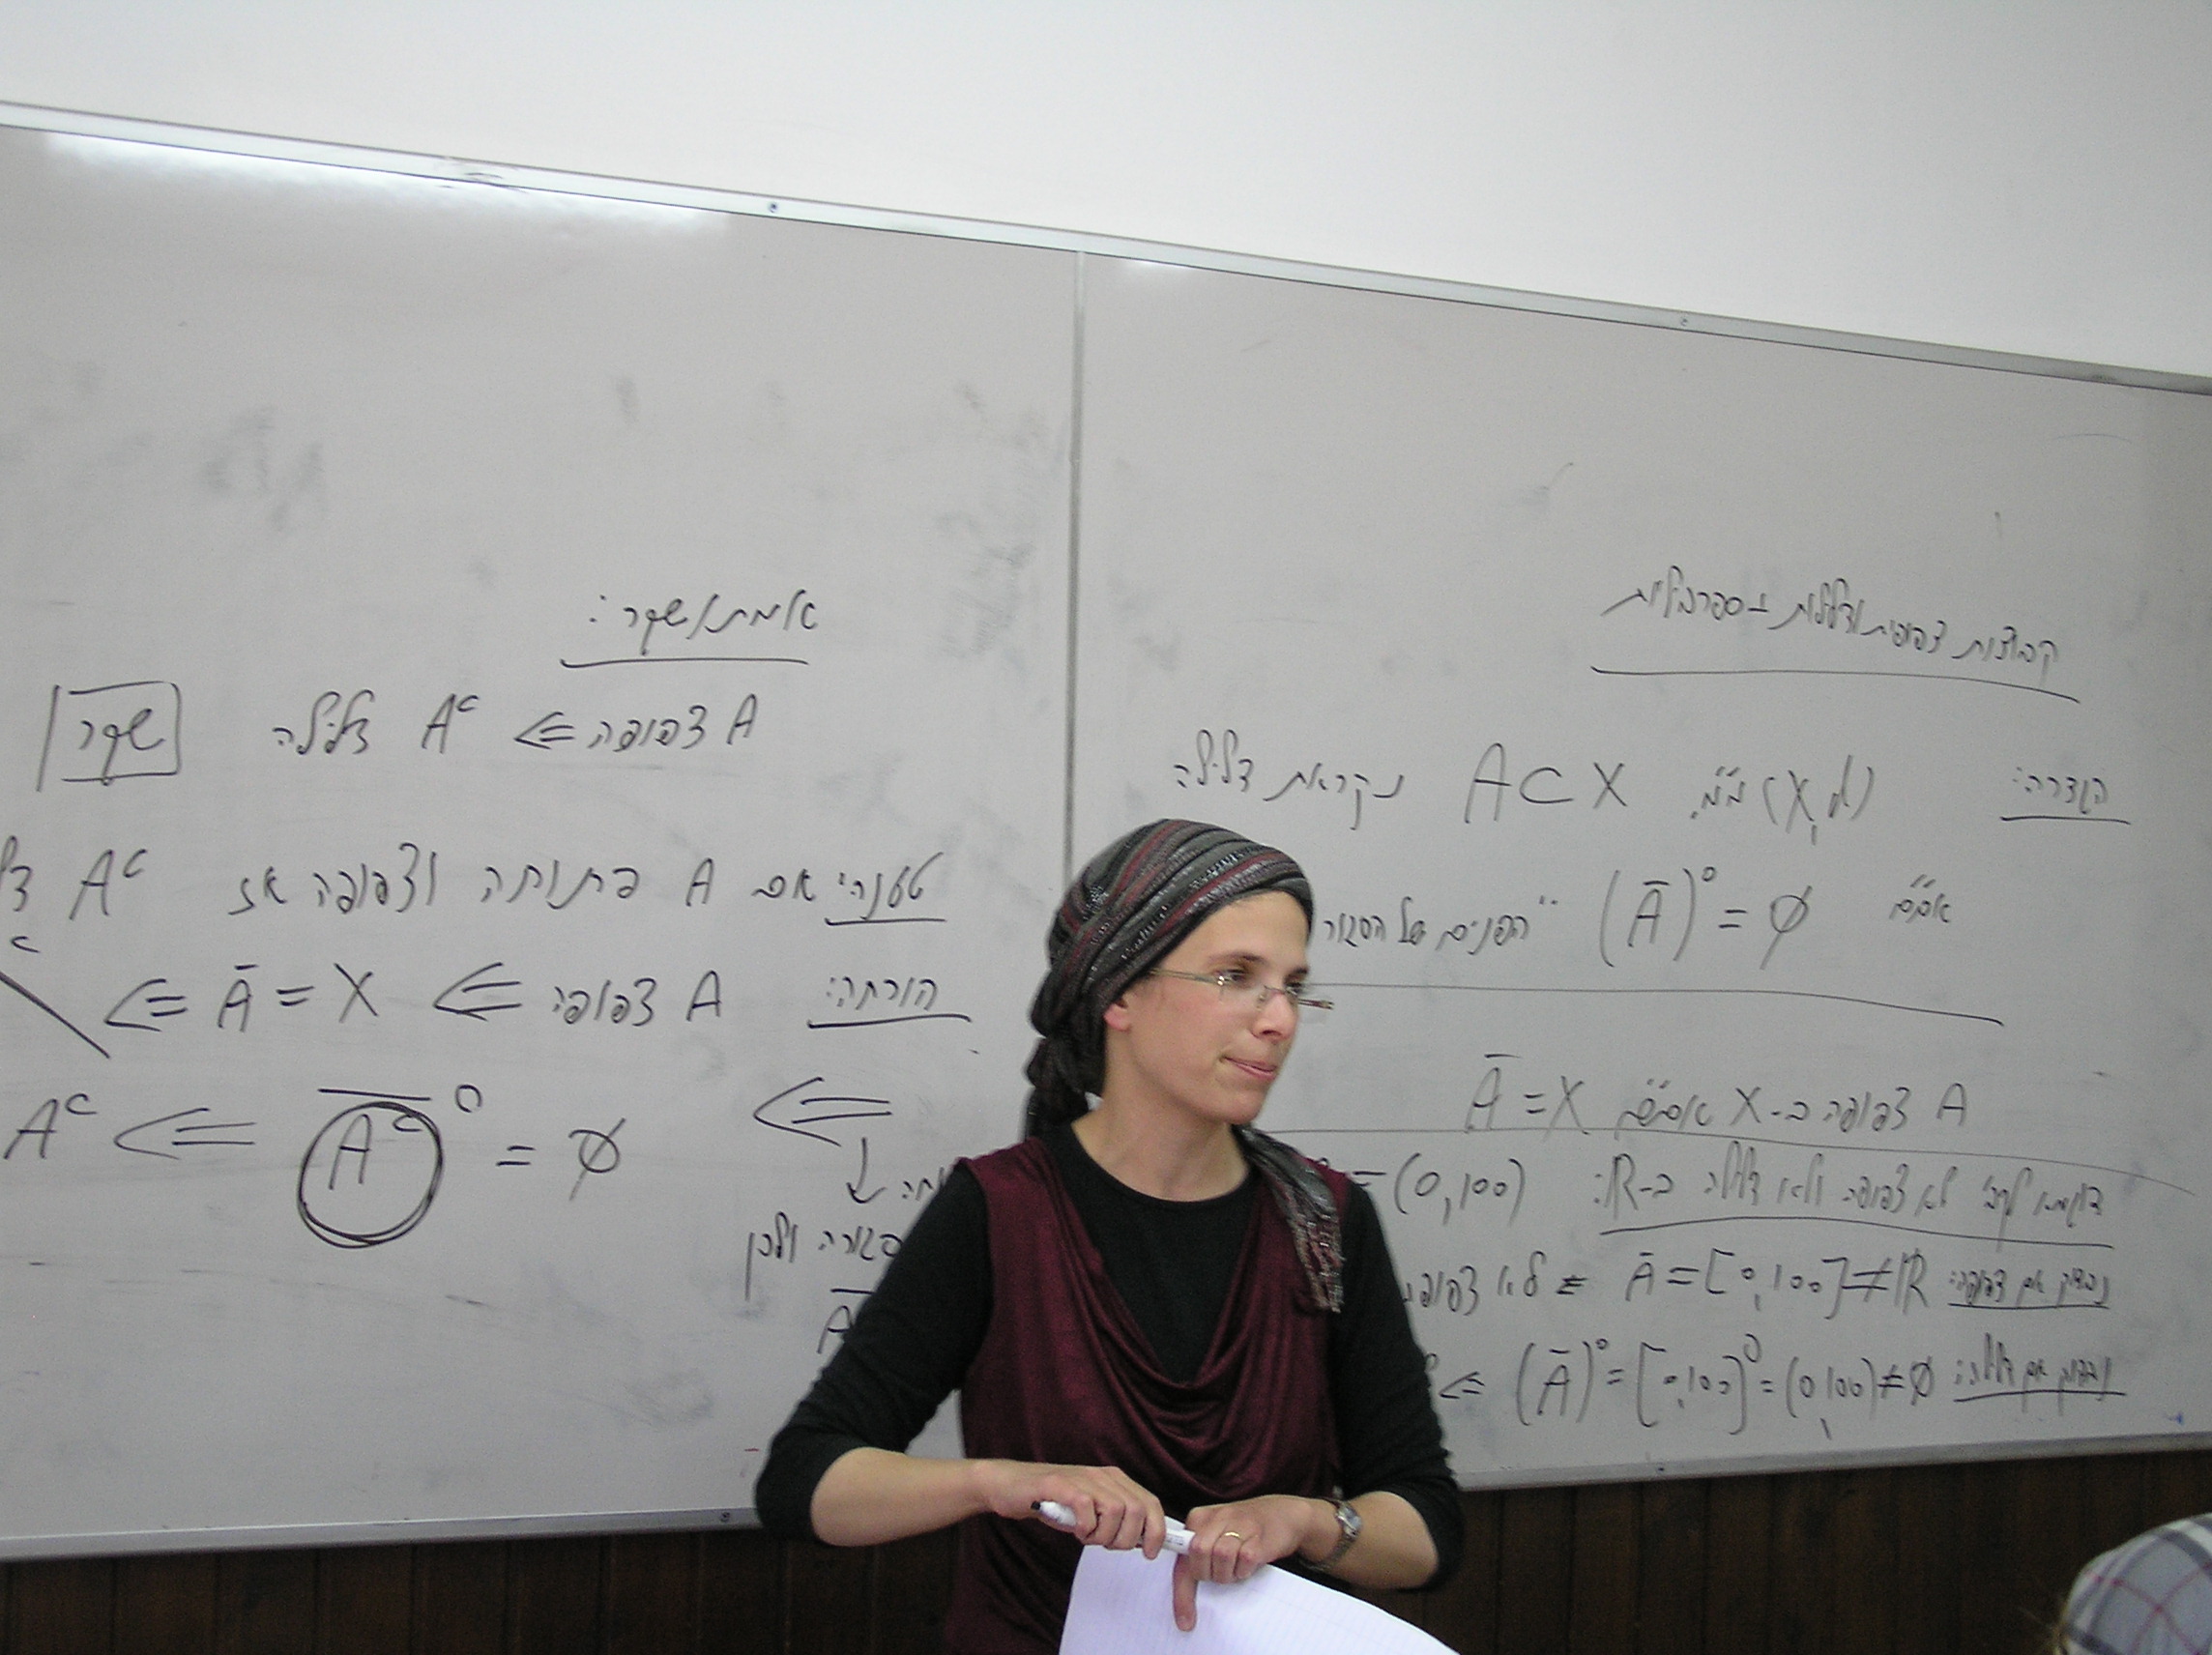 קבוצות צפופות ודלילות וספרביליות
הגדרה: (X,d) מ"מ. A⊂X נקראת דלילה
אמ"מ (Ā)° = ∅ "הפנים של הסגור
A צפופה ב-X אמ"מ Ā = X
דוגמא לקב' לא צפופה ולא דלילה ב-ℝ: =(0,100)
נבדוק אם צפופה: Ā = [0,100] ≠ ℝ ⇐ לא צפופה
נבדוק אם דלילה: (Ā)° = [0,100]° = (0,100) ≠ ∅ ⇐
אמת/שקר:
A צפופה ⇐ Aᶜ דלילה שקר
טענה: אם A פתוחה וצפופה אז Aᶜ
הוכחה: A צפופה ⇐ Ā = X ⇐
⇐ A̅ᶜ° = ∅ ⇐ Aᶜ
סגורה ולכן